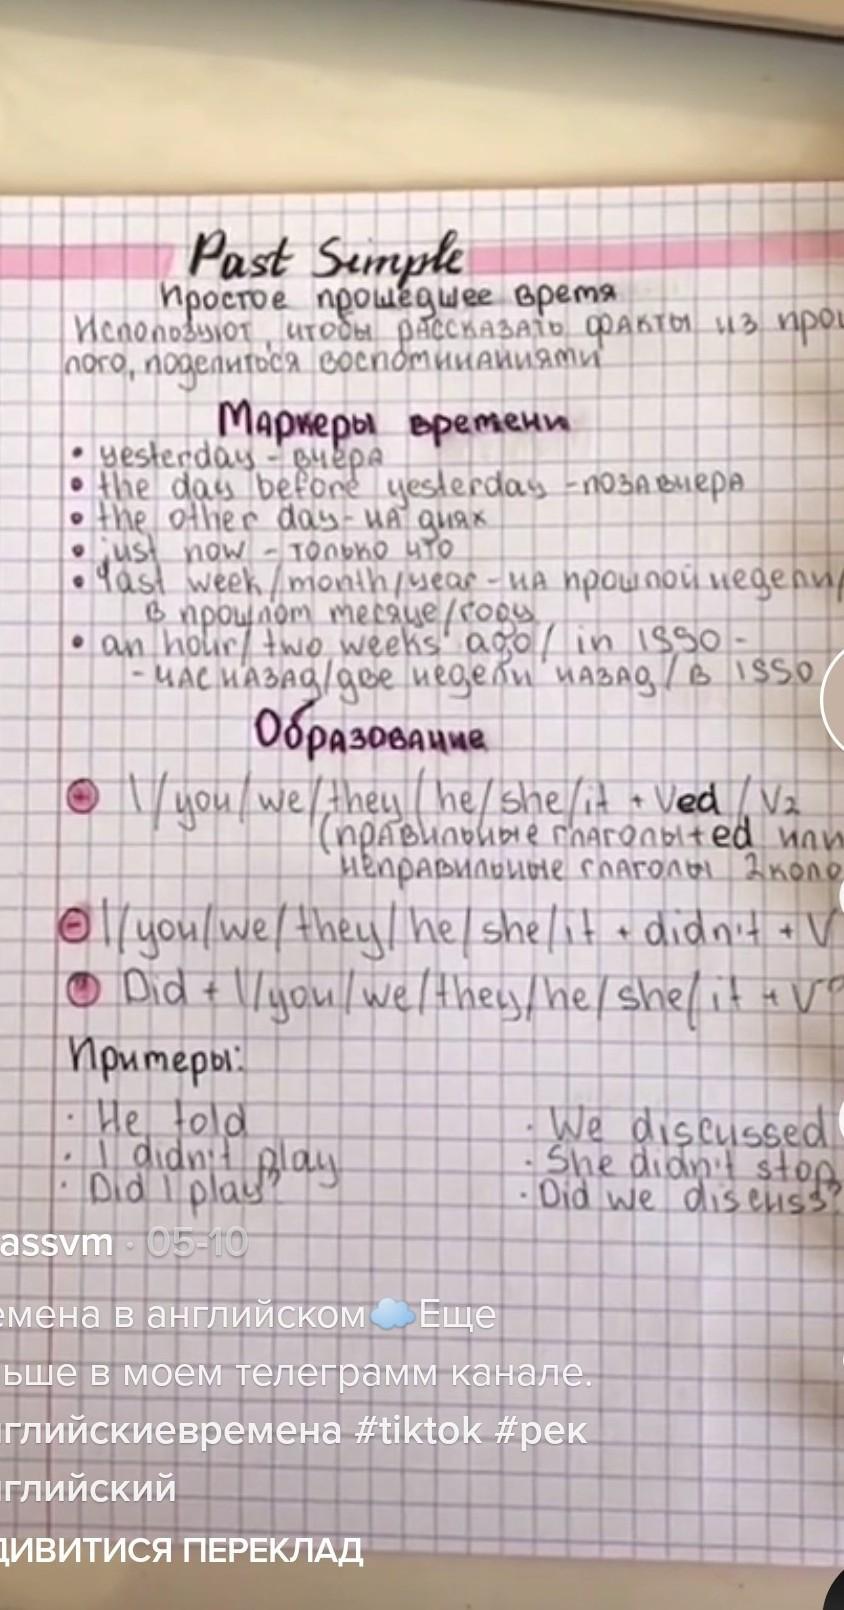 Past Simple
Простое прошедшее время
Используют, чтобы рассказать факты из прош
лого, поделиться воспоминаниями
Маркеры времени
• yesterday - вчера
• the day before yesterday - позавчера
• the other day - на днях
• just now - только что
• last week/month/year - на прошлой недели/
в прошлом месяце/году
• an hour/two weeks ago/ in 1990 -
- час назад/две недели назад/в 1990
Образование
+ I/you/we/they/he/she/it + Ved / V2
(правильные глаголы+ed или
неправильные глаголы 2коло
- I/you/we/they/he/she/it + didn't + V
? Did + I/you/we/they/he/she/it + V
Примеры:
· He told
· We discussed
· I didn't play
· She didn't stop
· Did I play?
· Did we discuss?
assvm · 05-10
емена в английском☁️Еще
ьше в моем телеграмм канале.
нглийскиевремена #tiktok #рек
нглийский
ДИВИТИСЯ ПЕРЕКЛАД